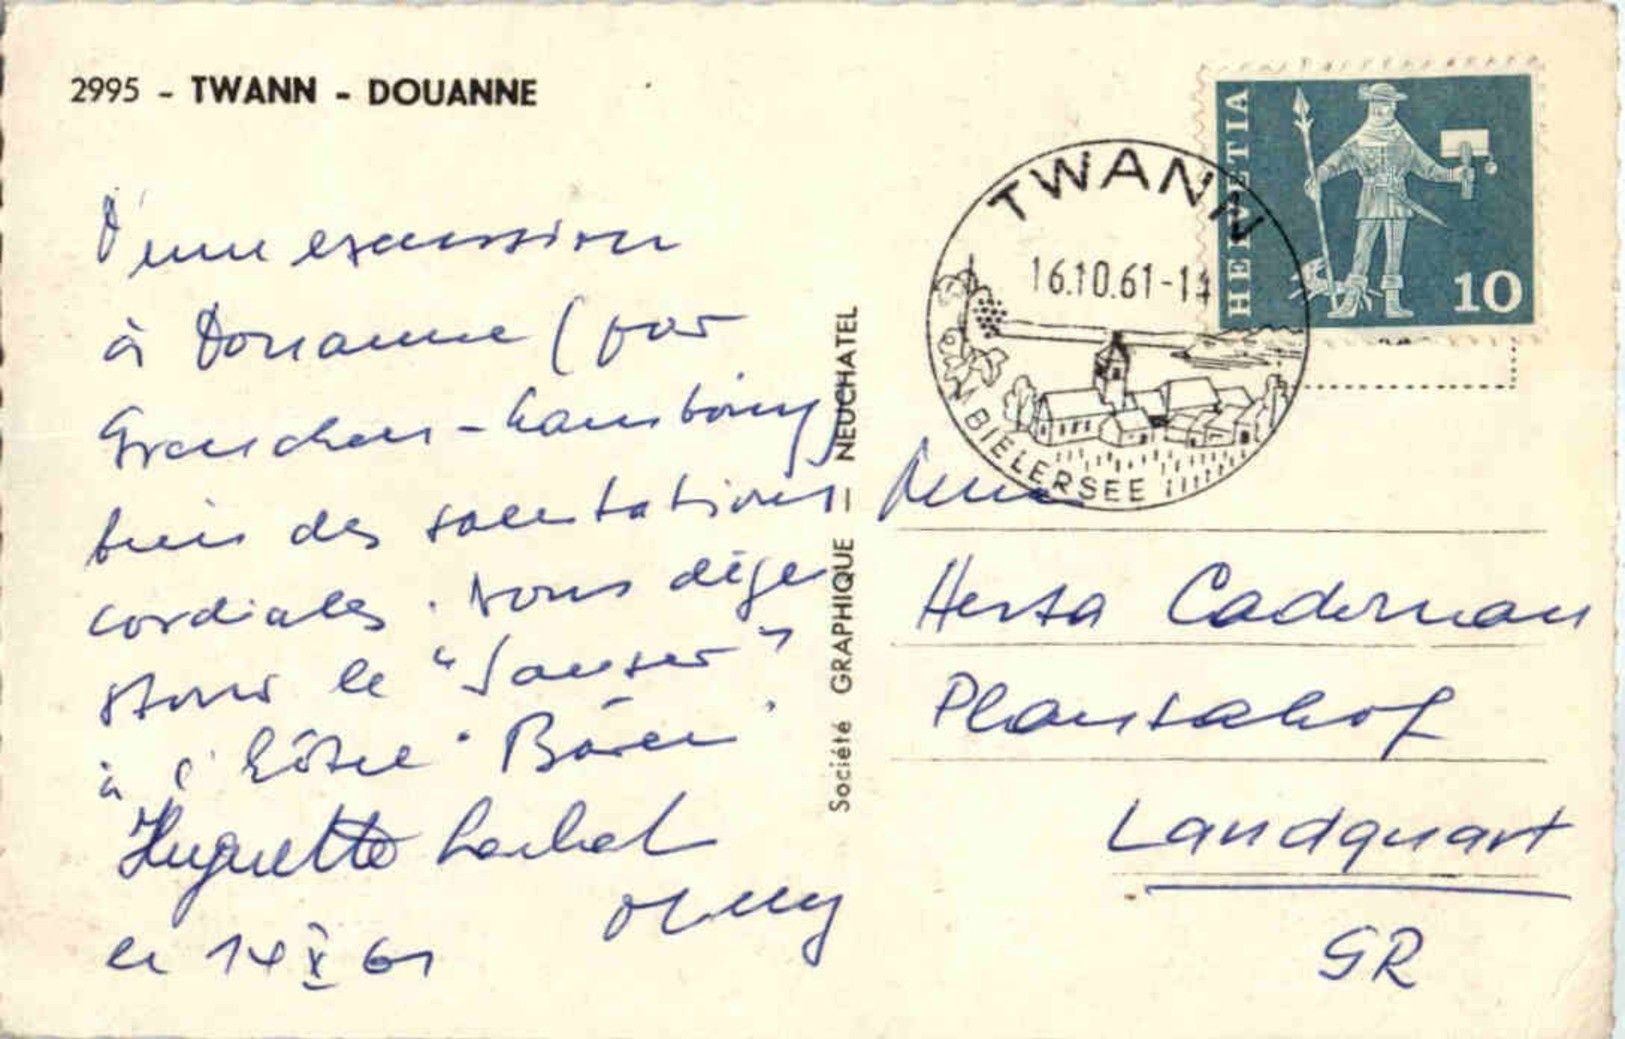 2995 - TWANN - DOUANNE
D'une excursion
à Douanne (par
Grenchen-
bien des salutations
cordiales. Nous dégu
stons le "Sauser"
à l'hôtel "Bären"
Huguette
le 14 X 61
Société GRAPHIQUE — NEUCHATEL
TWANN
16.10.61-11
BIELERSEE
HELVETIA
10
Herta Cadernau
Plantahof
Landquart
GR